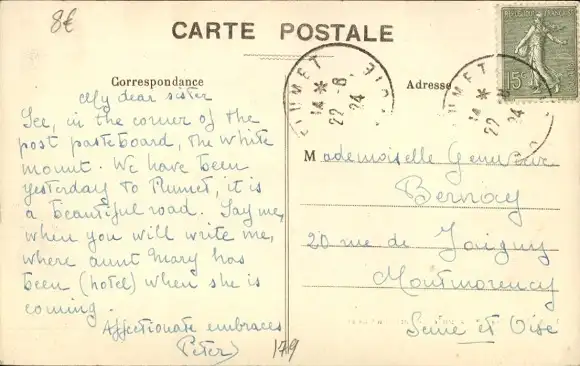 8€
CARTE POSTALE
Correspondance
Adresse
15c
FLUMET
14 *
22 -8
24
SAVOIE
FLUMET
14 *
22 -8
24
My dear sister
See, in the corner of the
post pasteboard, the white
mount. We have been
yesterday to Flumet, it is
a beautiful road. Say me,
when you will write me,
where aunt Mary has
been (hotel) when she is
coming.
Affectionate embraces
Peter
1719
Mademoiselle Geneviève
Bernay
20 rue de Jaigny
Montmorency
Seine et Oise